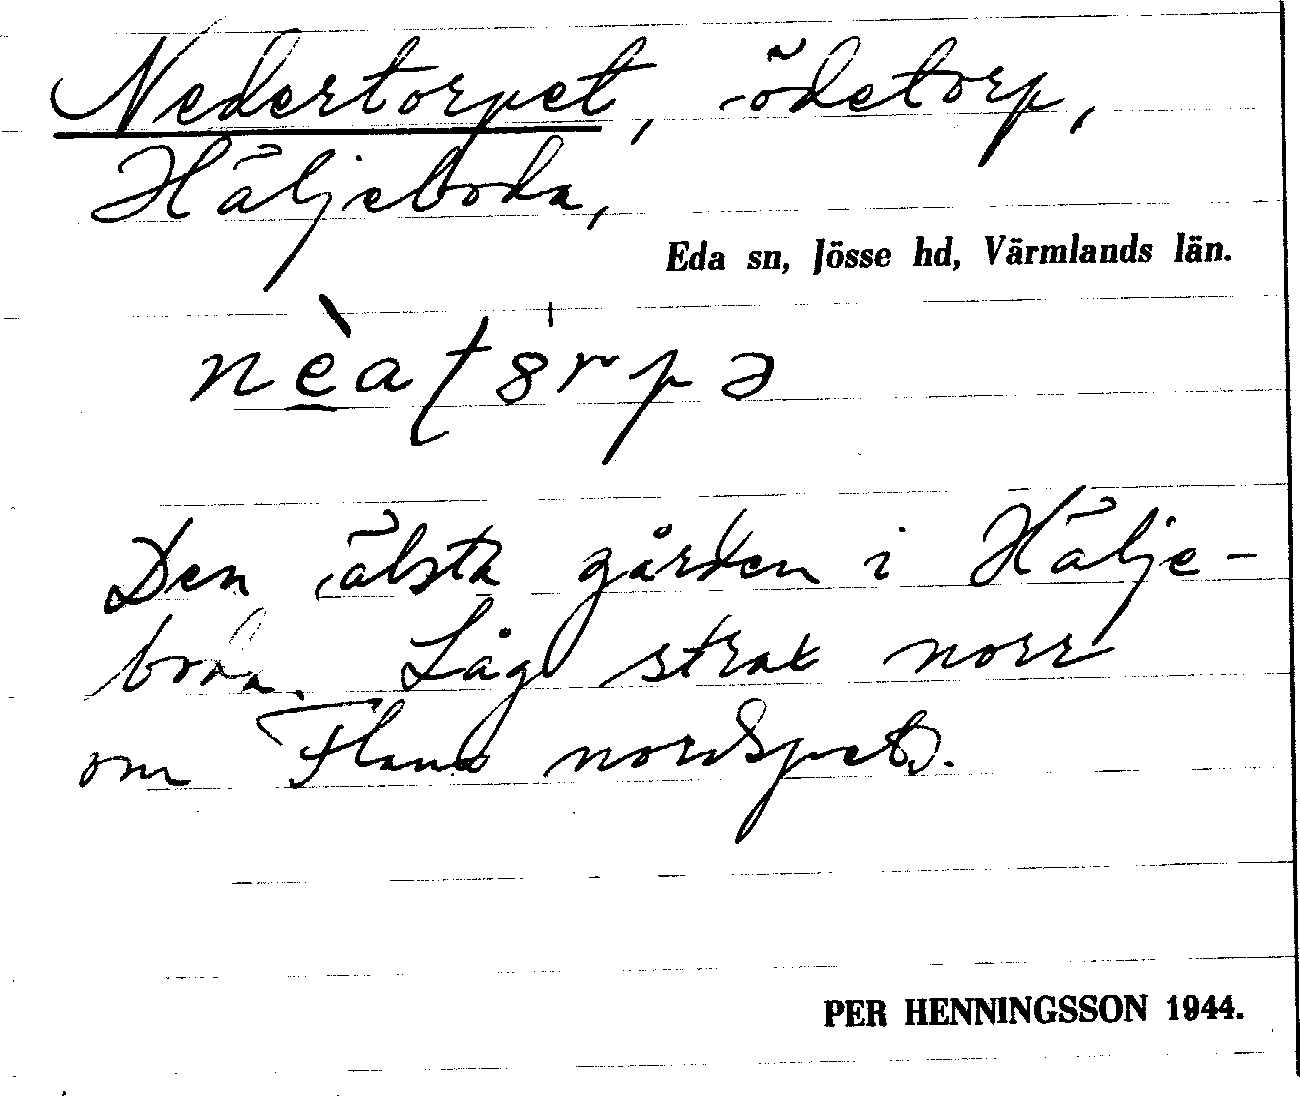 Nedertorpet, ödetorp,
Häljeboda,
Eda sn, Jösse hd, Värmlands län.
nèaʈ8rpə
Den älsta gården i Hälje-
boda. Låg strax norr
om Flana nordspets.
PER HENNINGSSON 1944.